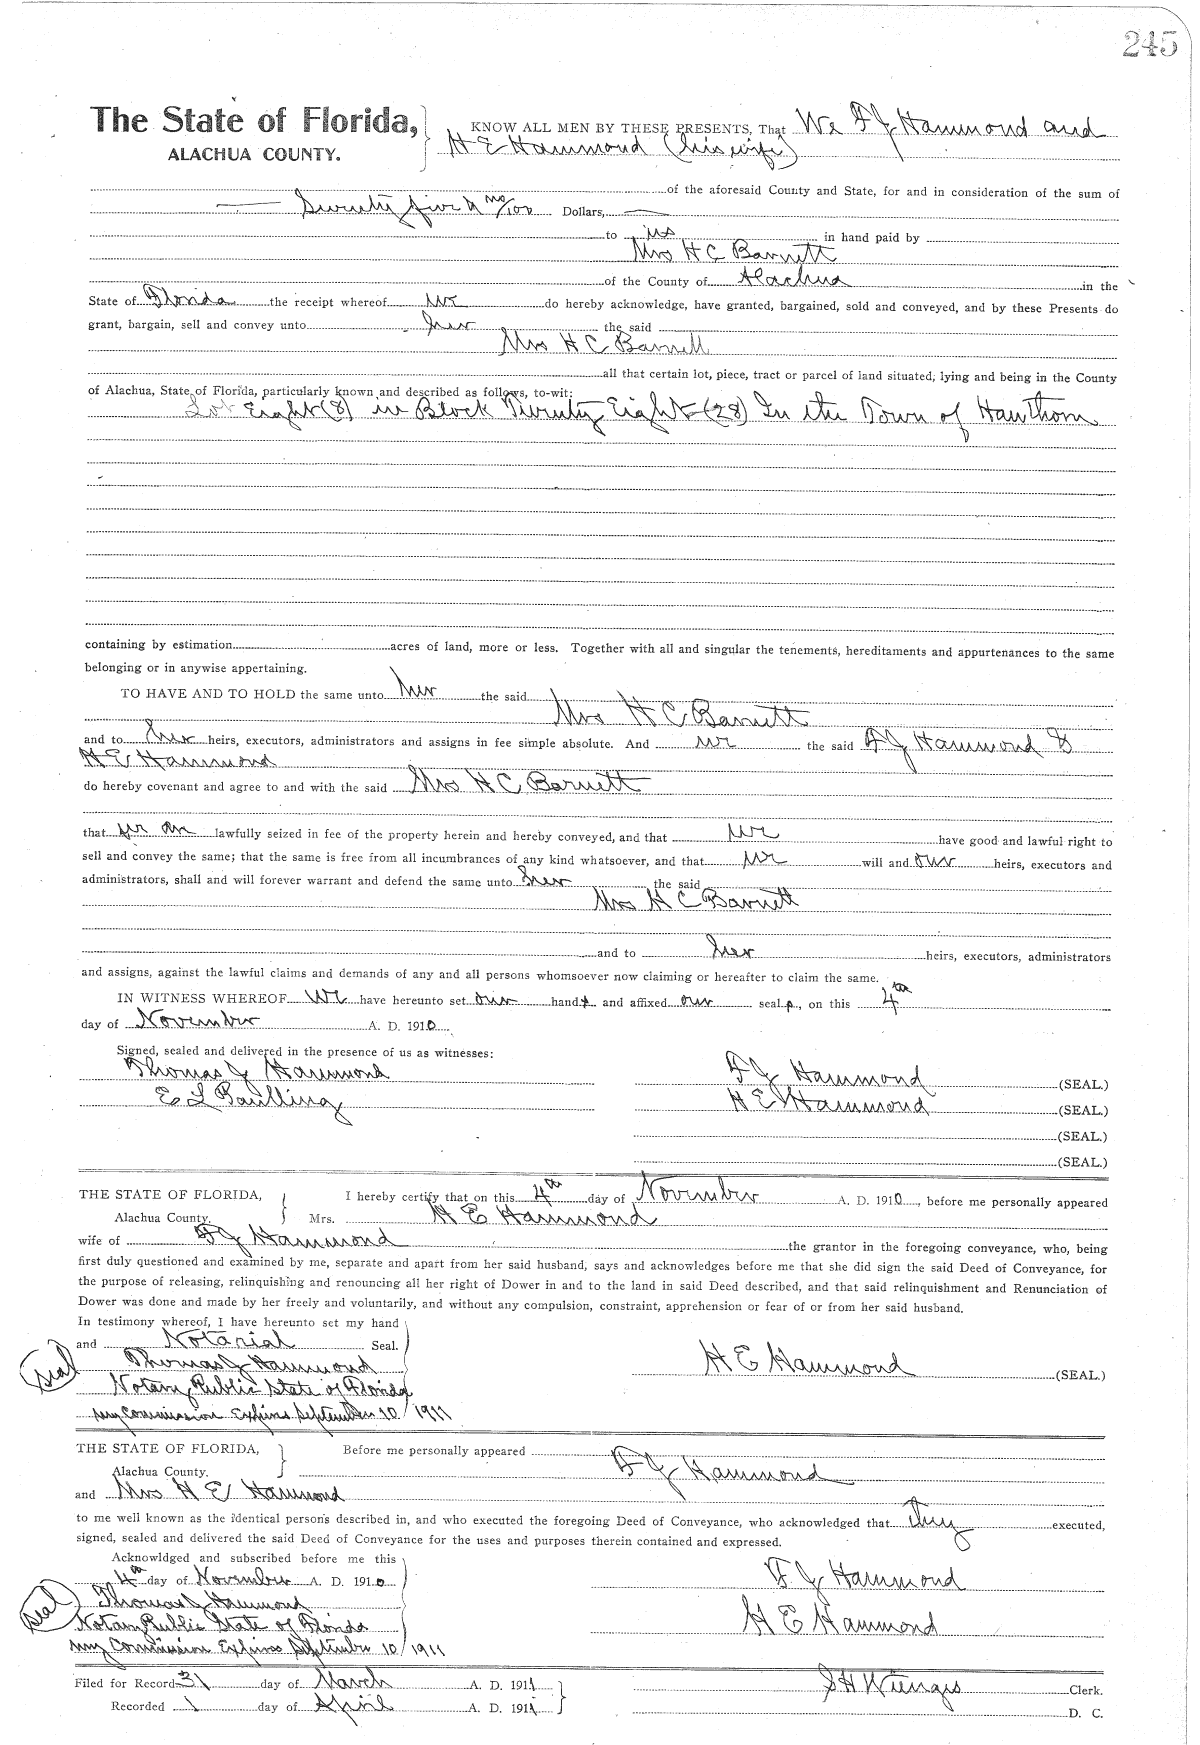 245
The State of Florida, KNOW ALL MEN BY THESE PRESENTS, That We F J Hammond and
ALACHUA COUNTY. H E Hammond (his wife)
of the aforesaid County and State, for and in consideration of the sum of
Twenty five & no/100 Dollars,
to us in hand paid by
Mrs H C Barnett
of the County of Alachua in the
State of Florida the receipt whereof we do hereby acknowledge, have granted, bargained, sold and conveyed, and by these Presents do
grant, bargain, sell and convey unto her the said
Mrs H C Barnett
all that certain lot, piece, tract or parcel of land situated, lying and being in the County
of Alachua, State of Florida, particularly known and described as follows, to-wit:
Lot Eight (8) in Block Twenty Eight (28) In the Town of Hawthorn
containing by estimation acres of land, more or less. Together with all and singular the tenements, hereditaments and appurtenances to the same
belonging or in anywise appertaining.
TO HAVE AND TO HOLD the same unto her the said
Mrs H C Barnett
and to her heirs, executors, administrators and assigns in fee simple absolute. And we the said F J Hammond &
H E Hammond
do hereby covenant and agree to and with the said Mrs H C Barnett
that we are lawfully seized in fee of the property herein and hereby conveyed, and that we have good and lawful right to
sell and convey the same; that the same is free from all incumbrances of any kind whatsoever, and that we will and our heirs, executors and
administrators, shall and will forever warrant and defend the same unto her the said
Mrs H C Barnett
and to her heirs, executors, administrators
and assigns, against the lawful claims and demands of any and all persons whomsoever now claiming or hereafter to claim the same.
IN WITNESS WHEREOF We have hereunto set our hands and affixed our seals, on this 4th
day of November A. D. 1910
Signed, sealed and delivered in the presence of us as witnesses:
Thomas J Hammond F J Hammond (SEAL.)
E L Paulling H E Hammond (SEAL.)
(SEAL.)
(SEAL.)
THE STATE OF FLORIDA, I hereby certify that on this 4th day of November A. D. 1910, before me personally appeared
Alachua County. Mrs. H E Hammond
wife of F J Hammond the grantor in the foregoing conveyance, who, being
first duly questioned and examined by me, separate and apart from her said husband, says and acknowledges before me that she did sign the said Deed of Conveyance, for
the purpose of releasing, relinquishing and renouncing all her right of Dower in and to the land in said Deed described, and that said relinquishment and Renunciation of
Dower was done and made by her freely and voluntarily, and without any compulsion, constraint, apprehension or fear of or from her said husband.
In testimony whereof, I have hereunto set my hand
and Notarial Seal.
seal Thomas J Hammond H E Hammond (SEAL.)
Notary Public State of Florida
my Commission Expires September 10/1911
THE STATE OF FLORIDA, Before me personally appeared
Alachua County. F J Hammond
and Mrs H E Hammond
to me well known as the identical persons described in, and who executed the foregoing Deed of Conveyance, who acknowledged that they executed,
signed, sealed and delivered the said Deed of Conveyance for the uses and purposes therein contained and expressed.
Acknowldged and subscribed before me this
4th day of November A. D. 1910 F J Hammond
seal Thomas J Hammond
Notary Public State of Florida H E Hammond
my Commission Expires September 10/1911
Filed for Record 31 day of March A. D. 1911 S H Wienges Clerk.
Recorded 1 day of April A. D. 1911 D. C.